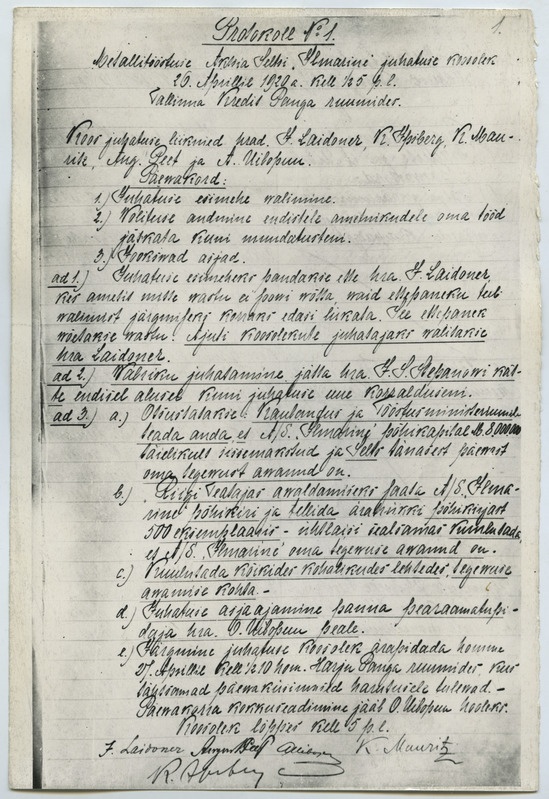 1.
Protokoll № 1.
Metallitööstuse Aktsia Seltsi, Ilmarine' juhatuse koosolek
26. Aprillil 1920 a. kell ½5 p.l.
Tallinna Kredit Panga ruumides.
Koos juhatuse liikmed hrad. J. Laidoner, K. Ipsberg, K. Mau-
ritz, Aug. Peet ja A. Uibopuu.
Päewakord:
1.) Juhatuse esimehe walimine.
2.) Wolituse andmine endistele ametnikudele oma tööd
jätkata kuni muudatusteni.
3.) Jookswad asjad.
ad 1.) Juhatuse esimeheks pandakse ette hra. J. Laidoner,
kes ametit mitte wastu ei soowi wõtta, waid ettepaneku teeb
walimist järgmiseks korraks edasi lükata. See ettepanek
wõetakse wastu. Ajuti koosolekute juhatajaks walitakse
hra Laidoner.
ad 2.) Wabriku juhatamine jätta hra. J. S. Stepanowi kät-
te endisel alusel kuni juhatuse uue korralduseni.
ad 3.) a.) Otsustatakse: Kaubandus ja Tööstusministeeriumile
teada anda, et A/S. Ilmarine' põhikapital M. 8.000.000
täielikult sissemakstud ja Selts tänasest päewast
oma tegewust awanud on.
b.) Riigi Teatajas awaldamiseks saata A/S. Ilma-
rine põhikiri ja tellida äratrükki põhikirjast
500 eksemplaaris - ühtlasi sealsamas kuulutada,
et A/S. Ilmarine' oma tegewuse awanud on.
c.) Kuulutada kõikides kohalikudes lehtedes, tegewuse
awamise kohta. -
d.) Juhatuse asjaajamine panna pearaamatupi-
daja hra. O. Uibopuu peale.
e.) Järgmine juhatuse koosolek ärapidada homme
27. Aprillil kell ½10 hom. Harju Panga ruumides, kus
tähtsamad päewaküsimused harutusele tulewad. -
Päewakorra kokkuseadimine jääb O. Uibopuu hooleks.
Koosolek lõppes kell 5 p.l.
J. Laidoner August Peet K. Mauritz
K. Ipsberg